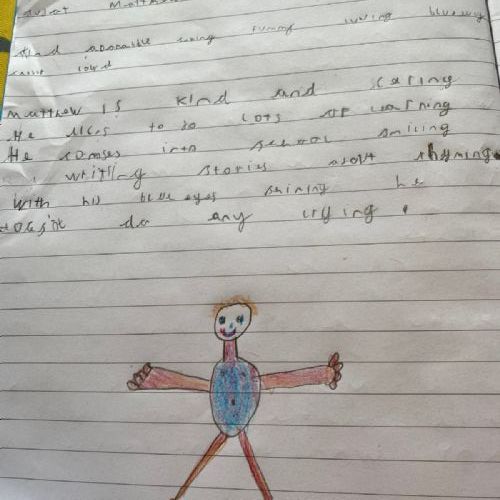 Kind adorable caring funny loving blue eyes
loud
Matthew is kind and caring
He likes to do lots of learning
He comses into school smiling
writting stories about rhyming
With his blue eyes shining he
doesn't do any crying.